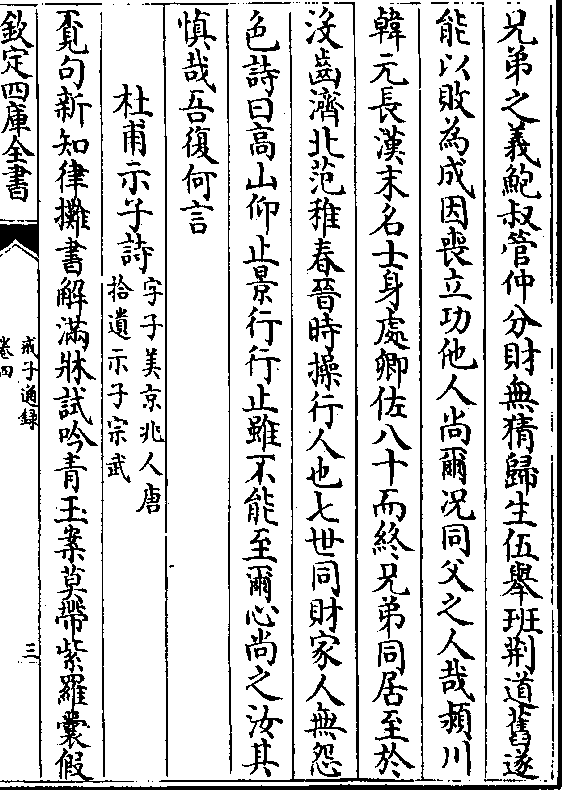 兄弟之義鮑叔管仲分財無猜歸生伍舉班荆道舊遂
能以敗為成因喪立功他人尚爾况同父之人哉潁川
韓元長漢末名士身處卿佐八十而終兄弟同居至於
没齒濟北范稚春晉時操行人也七世同財家人無怨
色詩曰高山仰止景行行止雖不能至爾心尚之汝其
慎哉吾復何言
杜甫示子詩
字子美京兆人唐
拾遺示子宗武
覔句新知律攤書解滿牀試吟青玉案莫帶紫羅囊假
欽定四庫全書
戒子通録
卷四
三